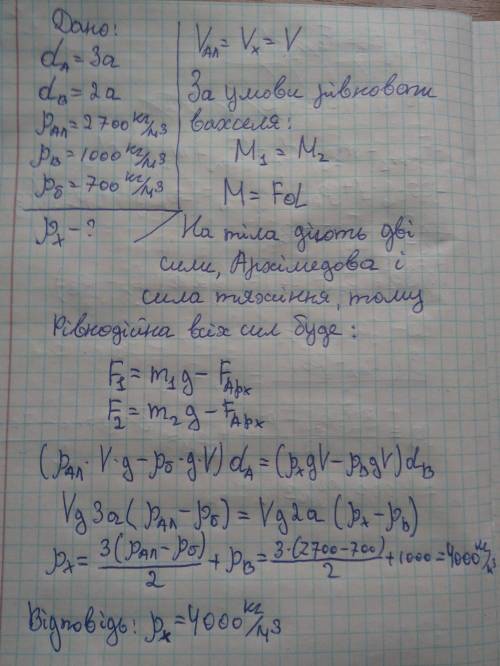 Дано:
d_A = 3a
d_B = 2a
ρ_Ал = 2700 кг/м3
ρ_В = 1000 кг/м3
ρ_б = 700 кг/м3
ρ_x - ?
V_Ал = V_x = V
За умови рівноваги
важеля:
M₁ = M₂
M = Fd
На тіла діють дві
сили, Архімедова і
сила тяжіння, тому
Рівнодійна всіх сил буде:
F₁ = m₁g - F_Арх
F₂ = m₂g - F_Арх
(ρ_Ал · V · g - ρ_б · g · V) d_A = (ρ_x gV - ρ_B gV) d_B
Vg3a (ρ_Ал - ρ_б) = Vg2a (ρ_x - ρ_b)
ρ_x = 3(ρ_Ал - ρ_б)/2 + ρ_B = 3·(2700-700)/2 + 1000 = 4000 кг/м3
Відповідь: ρ_x = 4000 кг/м3